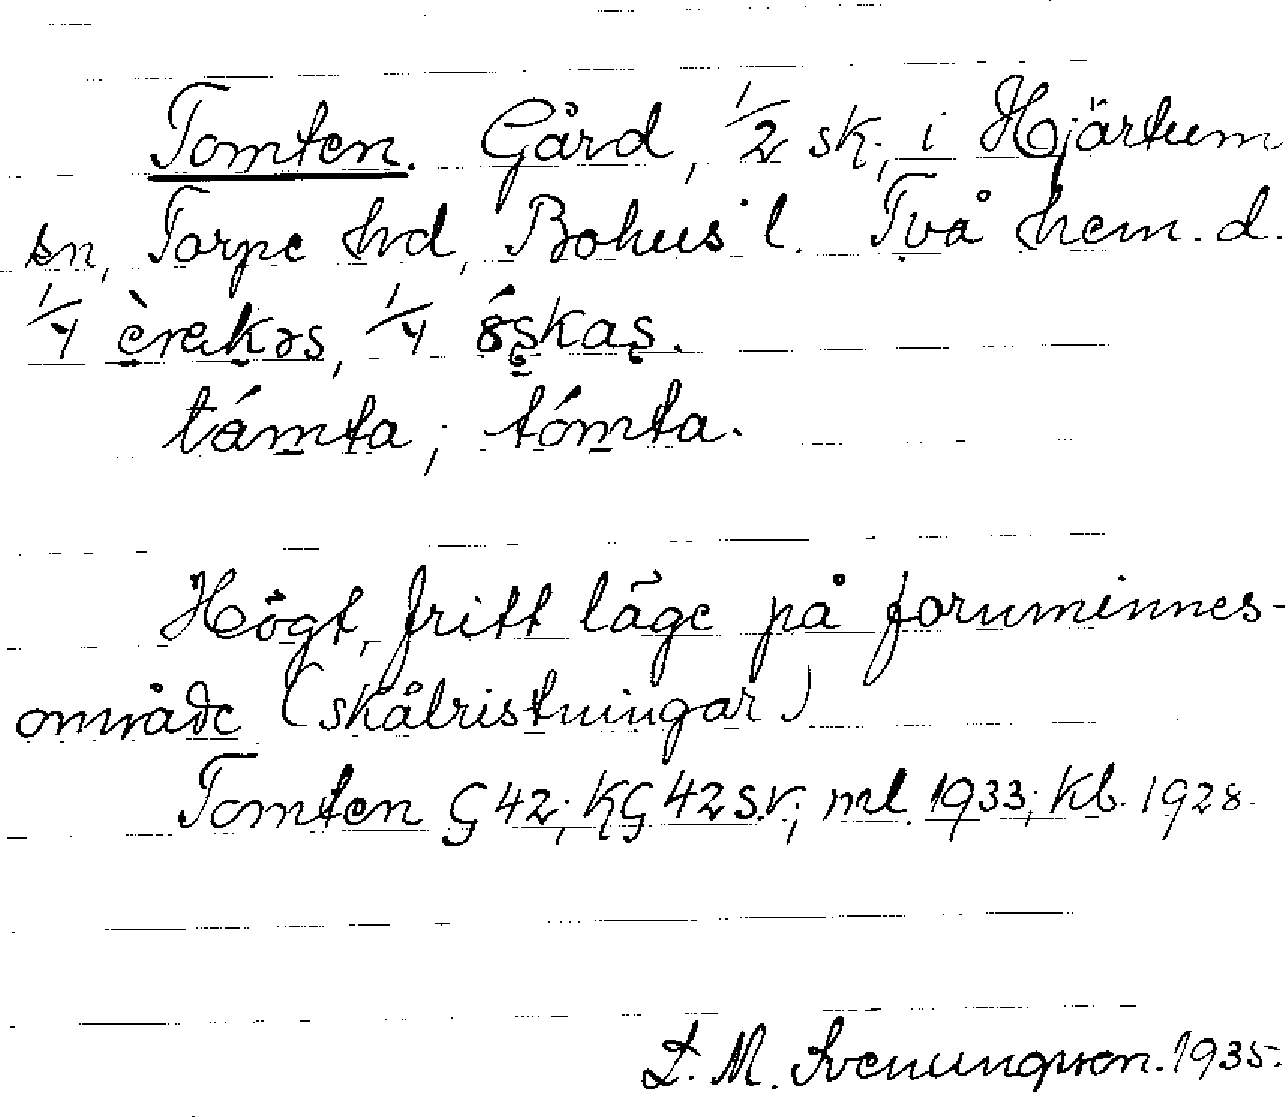 Tomten. Gård, 1/2 sk., i Hjärtum
sn, Torpe hd, Bohus l. Två hem. d.
1/4 èrakəs, 1/4 óskas.
támta; tómta.
Högt, fritt läge på fornminnes-
område (skålristningar)
Tomten G 42; KG 42 s.v.; ml. 1933; Kb. 1928.
L. M. Svenungsson. 1935.